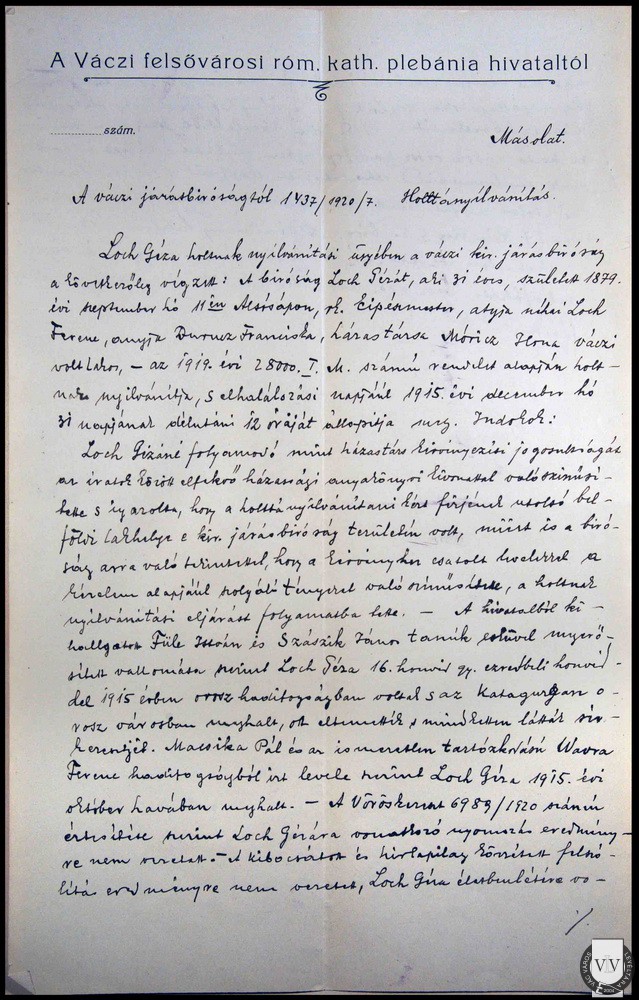 A Váczi felsővárosi róm. kath. plebánia hivataltól
szám.
Másolat.
A váczi járásbiróságtól 1437/1920/7. Holttányilvánitás.
Loch Géza holtnak nyilvánitási ügyében a váczi kir. járásbiróság
a következőleg végzett: A biróság Loch Gézát, aki 31 éves, született 1879.
évi szeptember hó 11én Alsósápon, rk. cipészmester, atyja néhai Loch
Ferenc, anyja Franciska, házastársa Móricz Ilona váczi
volt lakos, – az 1919. évi 28000. I. M. számú rendelet alapján holt-
nak nyilvánitja, s elhalálozási napjáúl 1915. évi december hó
31 napjának délutáni 12 óráját állapitja meg. Indokok:
Loch Gézáné folyamodó mint házastárs kérvényezési jogosultságát
az iratok között elfekvő házassági anyakönyvi kivonattal valószinűsi-
tette s igazolta, hogy a holttá nyilvánitani kért férjének utolsó bel-
földi lakhelye e kir. járásbiróság területén volt, miért is a biró-
ság arra való tekintettel, hogy a kérvényhez csatolt levelekkel a
kérelem alapjáúl szolgáló tényeket valószinűsitette, a holtnak
nyilvánitási eljárást folyamatba tette. – A hivatalból ki-
hallgatott Füle István és Szászik János tanúk esküvel megerő-
sitett vallomása szerint Loch Géza 16. honvéd gy. ezredbeli honvéd-
del 1915 évben orosz hadifogságban voltak s az Katagurgan o-
rosz városban meghalt, ott eltemették s mindketten látták sir-
keresztjét. Macsika Pál és az ismeretlen tartózkodású Wavra
Ferenc hadifogságból irt levele szerint Loch Géza 1915. évi
október havában meghalt. – A Vöröskereszt 6989/1920 számú
értesitése szerint Loch Gézára vonatkozó nyomozás eredmény-
re nem vezetett. – A kibocsátott és hirlapilag közzétett felszó-
litás eredményre nem vezetett, Loch Géza életbenlétére vo-
./.
VÁC VÁROS LEVÉLTÁRA